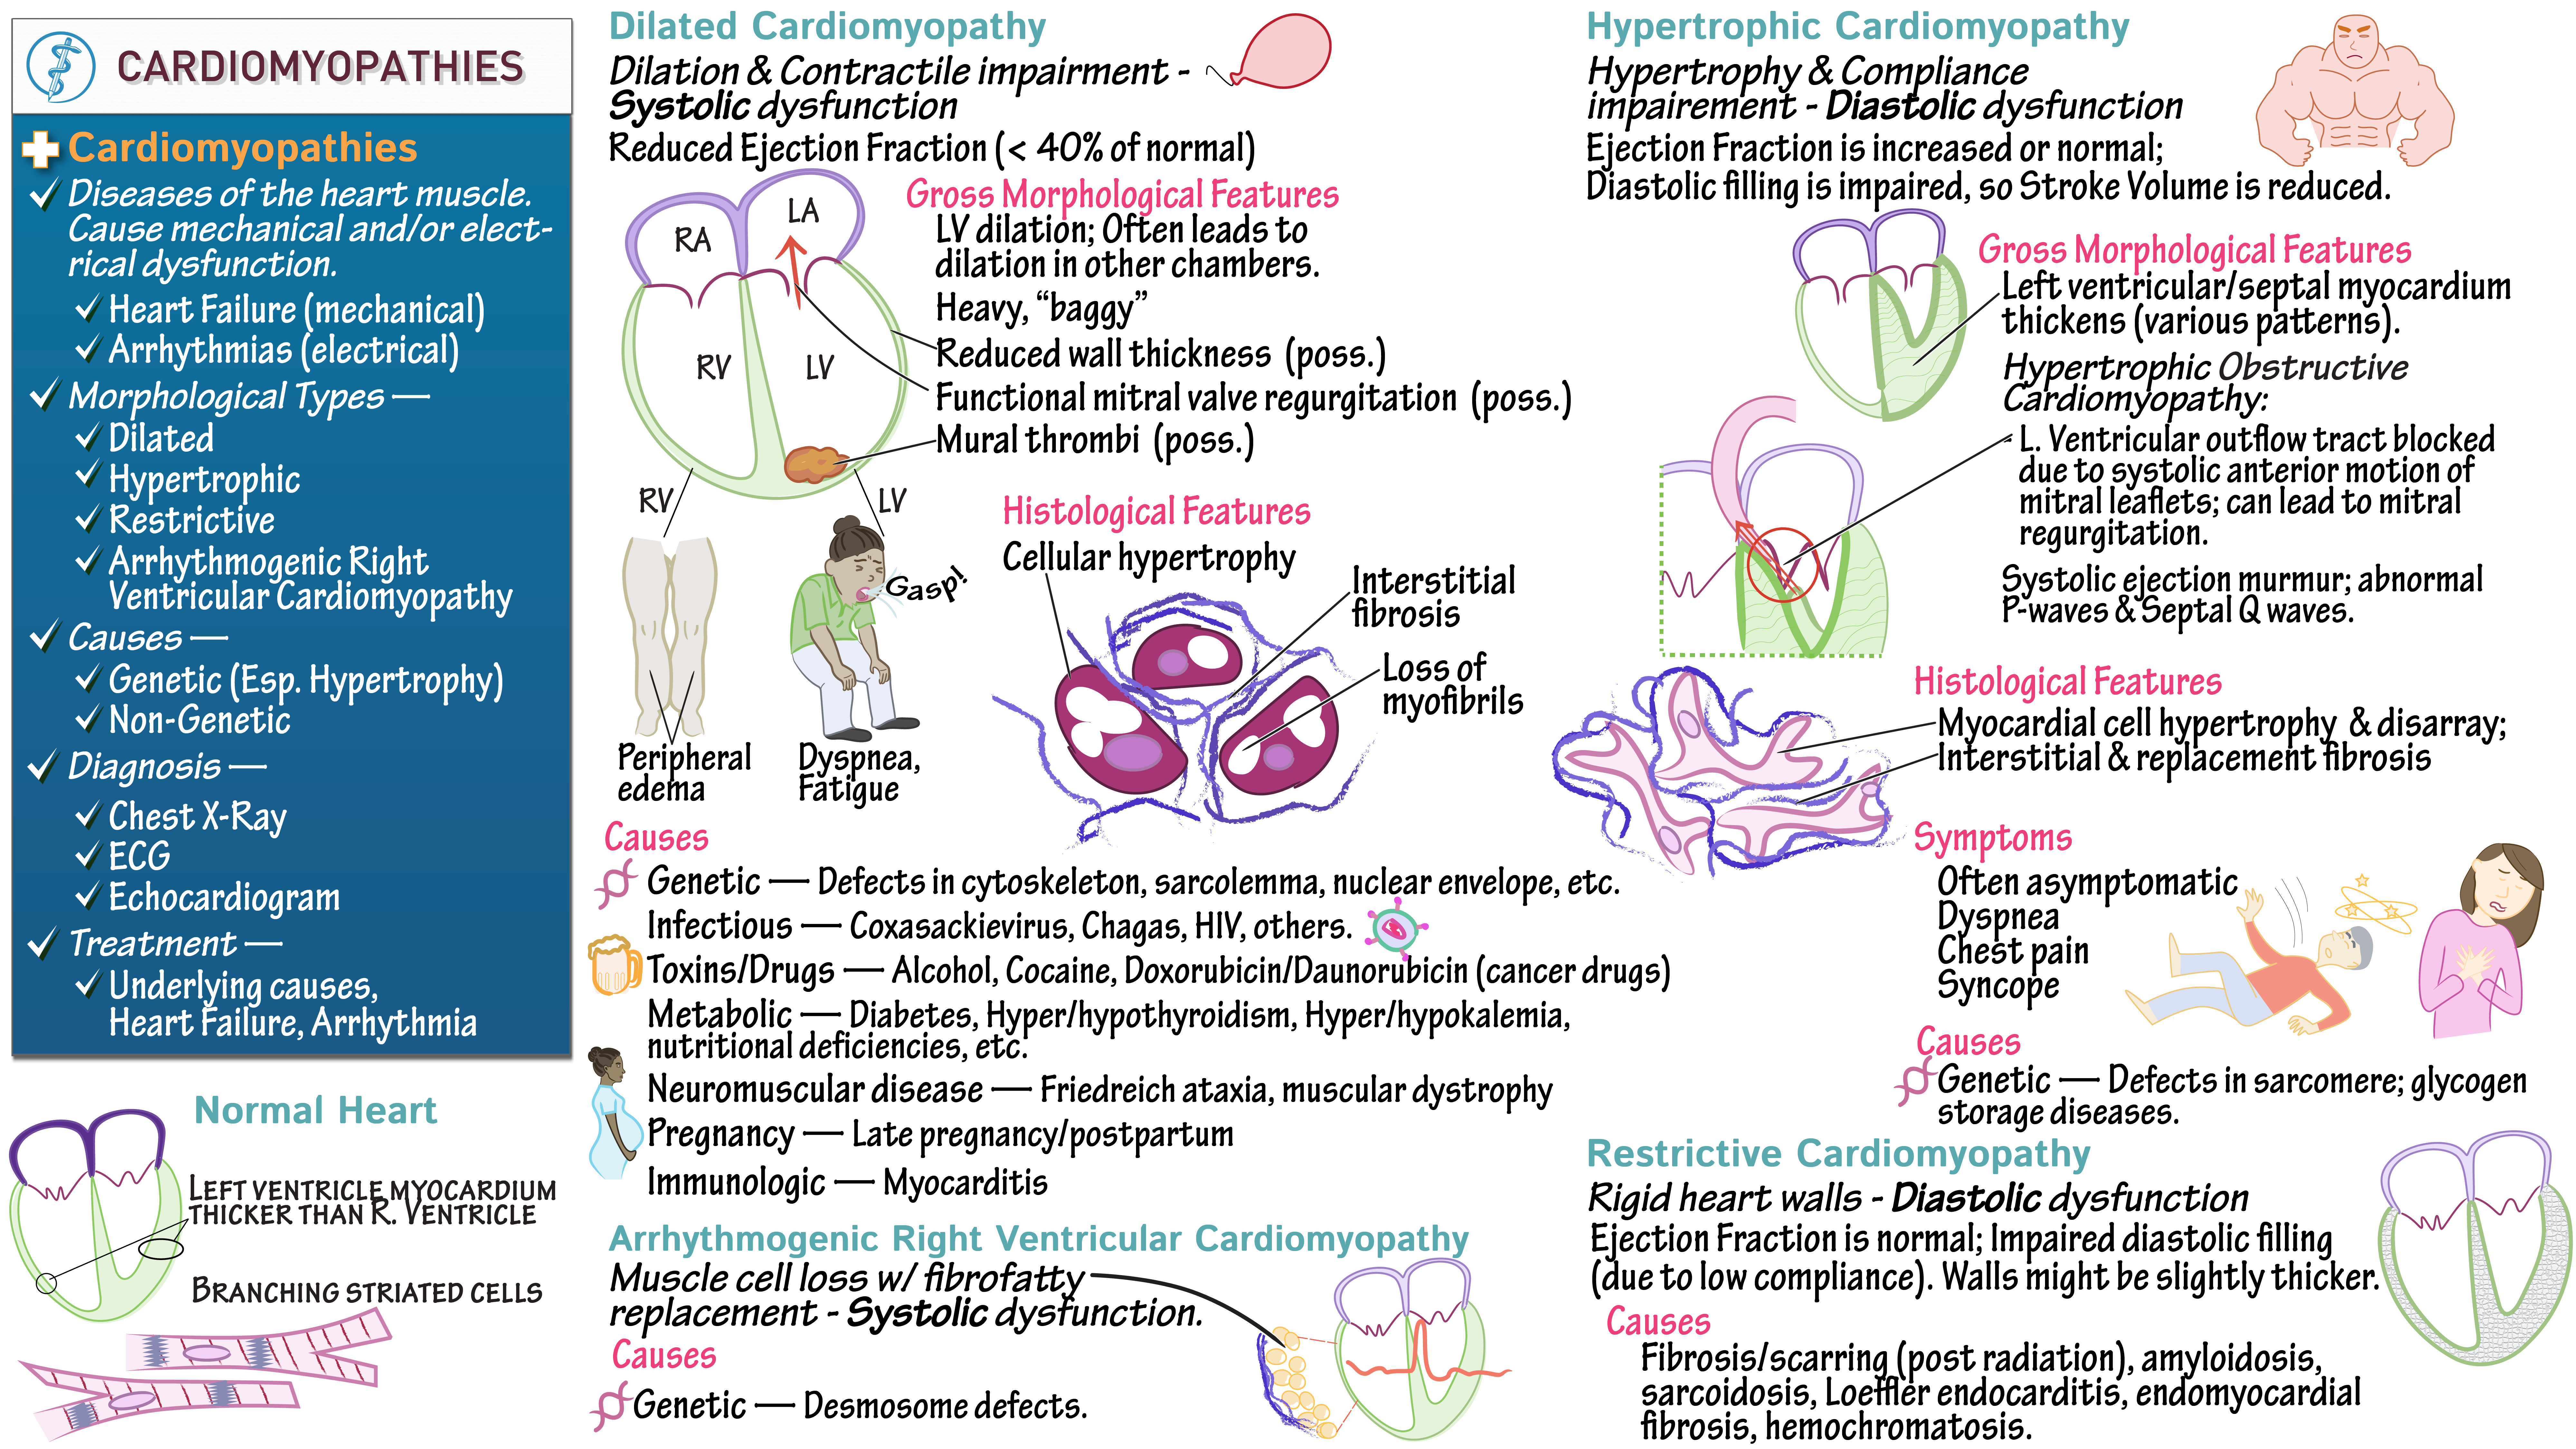 CARDIOMYOPATHIES
Cardiomyopathies
Diseases of the heart muscle.
Cause mechanical and/or elect-
rical dysfunction.
Heart Failure (mechanical)
Arrhythmias (electrical)
Morphological Types —
Dilated
Hypertrophic
Restrictive
Arrhythmogenic Right
Ventricular Cardiomyopathy
Causes —
Genetic (Esp. Hypertrophy)
Non-Genetic
Diagnosis —
Chest X-Ray
ECG
Echocardiogram
Treatment —
Underlying causes,
Heart Failure, Arrhythmia
Normal Heart
LEFT VENTRICLE MYOCARDIUM
THICKER THAN R. VENTRICLE
BRANCHING STRIATED CELLS
Dilated Cardiomyopathy
Dilation & Contractile impairment -
Systolic dysfunction
Reduced Ejection Fraction (< 40% of normal)
RA
LA
RV
LV
Gross Morphological Features
LV dilation; Often leads to
dilation in other chambers.
Heavy, “baggy”
Reduced wall thickness (poss.)
Functional mitral valve regurgitation (poss.)
Mural thrombi (poss.)
RV
LV
Gasp!
Peripheral
edema
Dyspnea,
Fatigue
Histological Features
Cellular hypertrophy
Interstitial
fibrosis
Loss of
myofibrils
Causes
Genetic — Defects in cytoskeleton, sarcolemma, nuclear envelope, etc.
Infectious — Coxasackievirus, Chagas, HIV, others.
Toxins/Drugs — Alcohol, Cocaine, Doxorubicin/Daunorubicin (cancer drugs)
Metabolic — Diabetes, Hyper/hypothyroidism, Hyper/hypokalemia,
nutritional deficiencies, etc.
Neuromuscular disease — Friedreich ataxia, muscular dystrophy
Pregnancy — Late pregnancy/postpartum
Immunologic — Myocarditis
Arrhythmogenic Right Ventricular Cardiomyopathy
Muscle cell loss w/ fibrofatty
replacement - Systolic dysfunction.
Causes
Genetic — Desmosome defects.
Hypertrophic Cardiomyopathy
Hypertrophy & Compliance
impairement - Diastolic dysfunction
Ejection Fraction is increased or normal;
Diastolic filling is impaired, so Stroke Volume is reduced.
Gross Morphological Features
Left ventricular/septal myocardium
thickens (various patterns).
Hypertrophic Obstructive
Cardiomyopathy:
L. Ventricular outflow tract blocked
due to systolic anterior motion of
mitral leaflets; can lead to mitral
regurgitation.
Systolic ejection murmur; abnormal
P-waves & Septal Q waves.
Histological Features
Myocardial cell hypertrophy & disarray;
Interstitial & replacement fibrosis
Symptoms
Often asymptomatic
Dyspnea
Chest pain
Syncope
Causes
Genetic — Defects in sarcomere; glycogen
storage diseases.
Restrictive Cardiomyopathy
Rigid heart walls - Diastolic dysfunction
Ejection Fraction is normal; Impaired diastolic filling
(due to low compliance). Walls might be slightly thicker.
Causes
Fibrosis/scarring (post radiation), amyloidosis,
sarcoidosis, Loeffler endocarditis, endomyocardial
fibrosis, hemochromatosis.